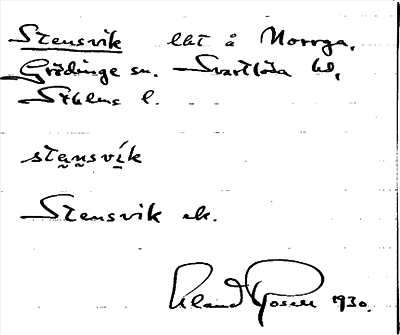 Stensvik lht å Norrga,
Grödinge sn. Svartlösa hd,
Sthlms l.
stensvik
Stensvik ek.
Erland Rosell 1930.